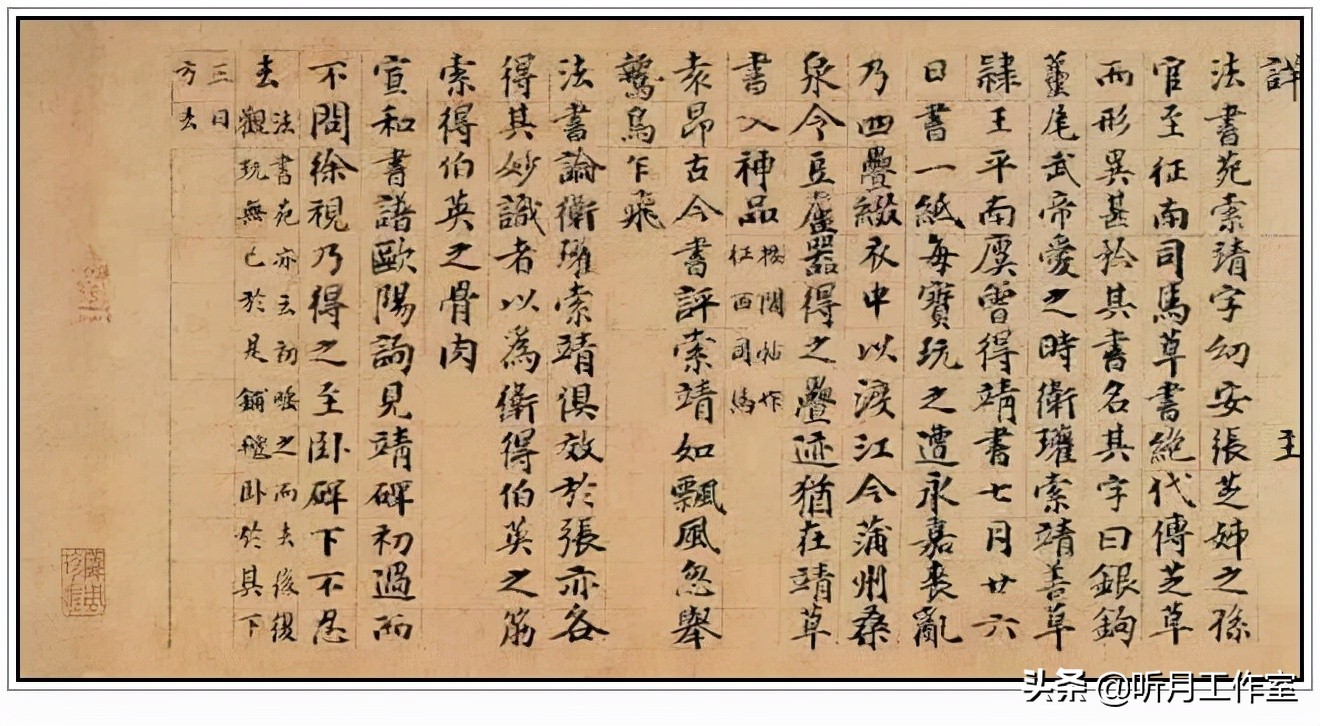 詳 王
法書苑索靖字幼安張芝姊之孫
官至征南司馬草書絶代傳芝草
而形異甚矜其書名其字曰銀鉤
蠆尾武帝愛之時衛瓘索靖善草
隸王平南廙曾得靖書七月廿六
日書一紙每寶玩之遭永嘉喪亂
乃四疊綴衣中以渡江今蒲州桑
泉令豆盧器得之疊迹猶在靖草
書入神品
按閣帖作
征西司馬
袁昂古今書評索靖如飄風忽舉
鷙鳥乍飛
法書論衛瓘索靖俱效於張亦各
得其妙識者以為衛得伯英之筋
索得伯英之骨肉
宣和書譜歐陽詢見靖碑初過而
不問徐視乃得之至卧碑下不忍
去
法書苑亦云初唾之而去後復
觀玩無已於是鋪氈卧於其下
三日
方去
头条 @听月工作室